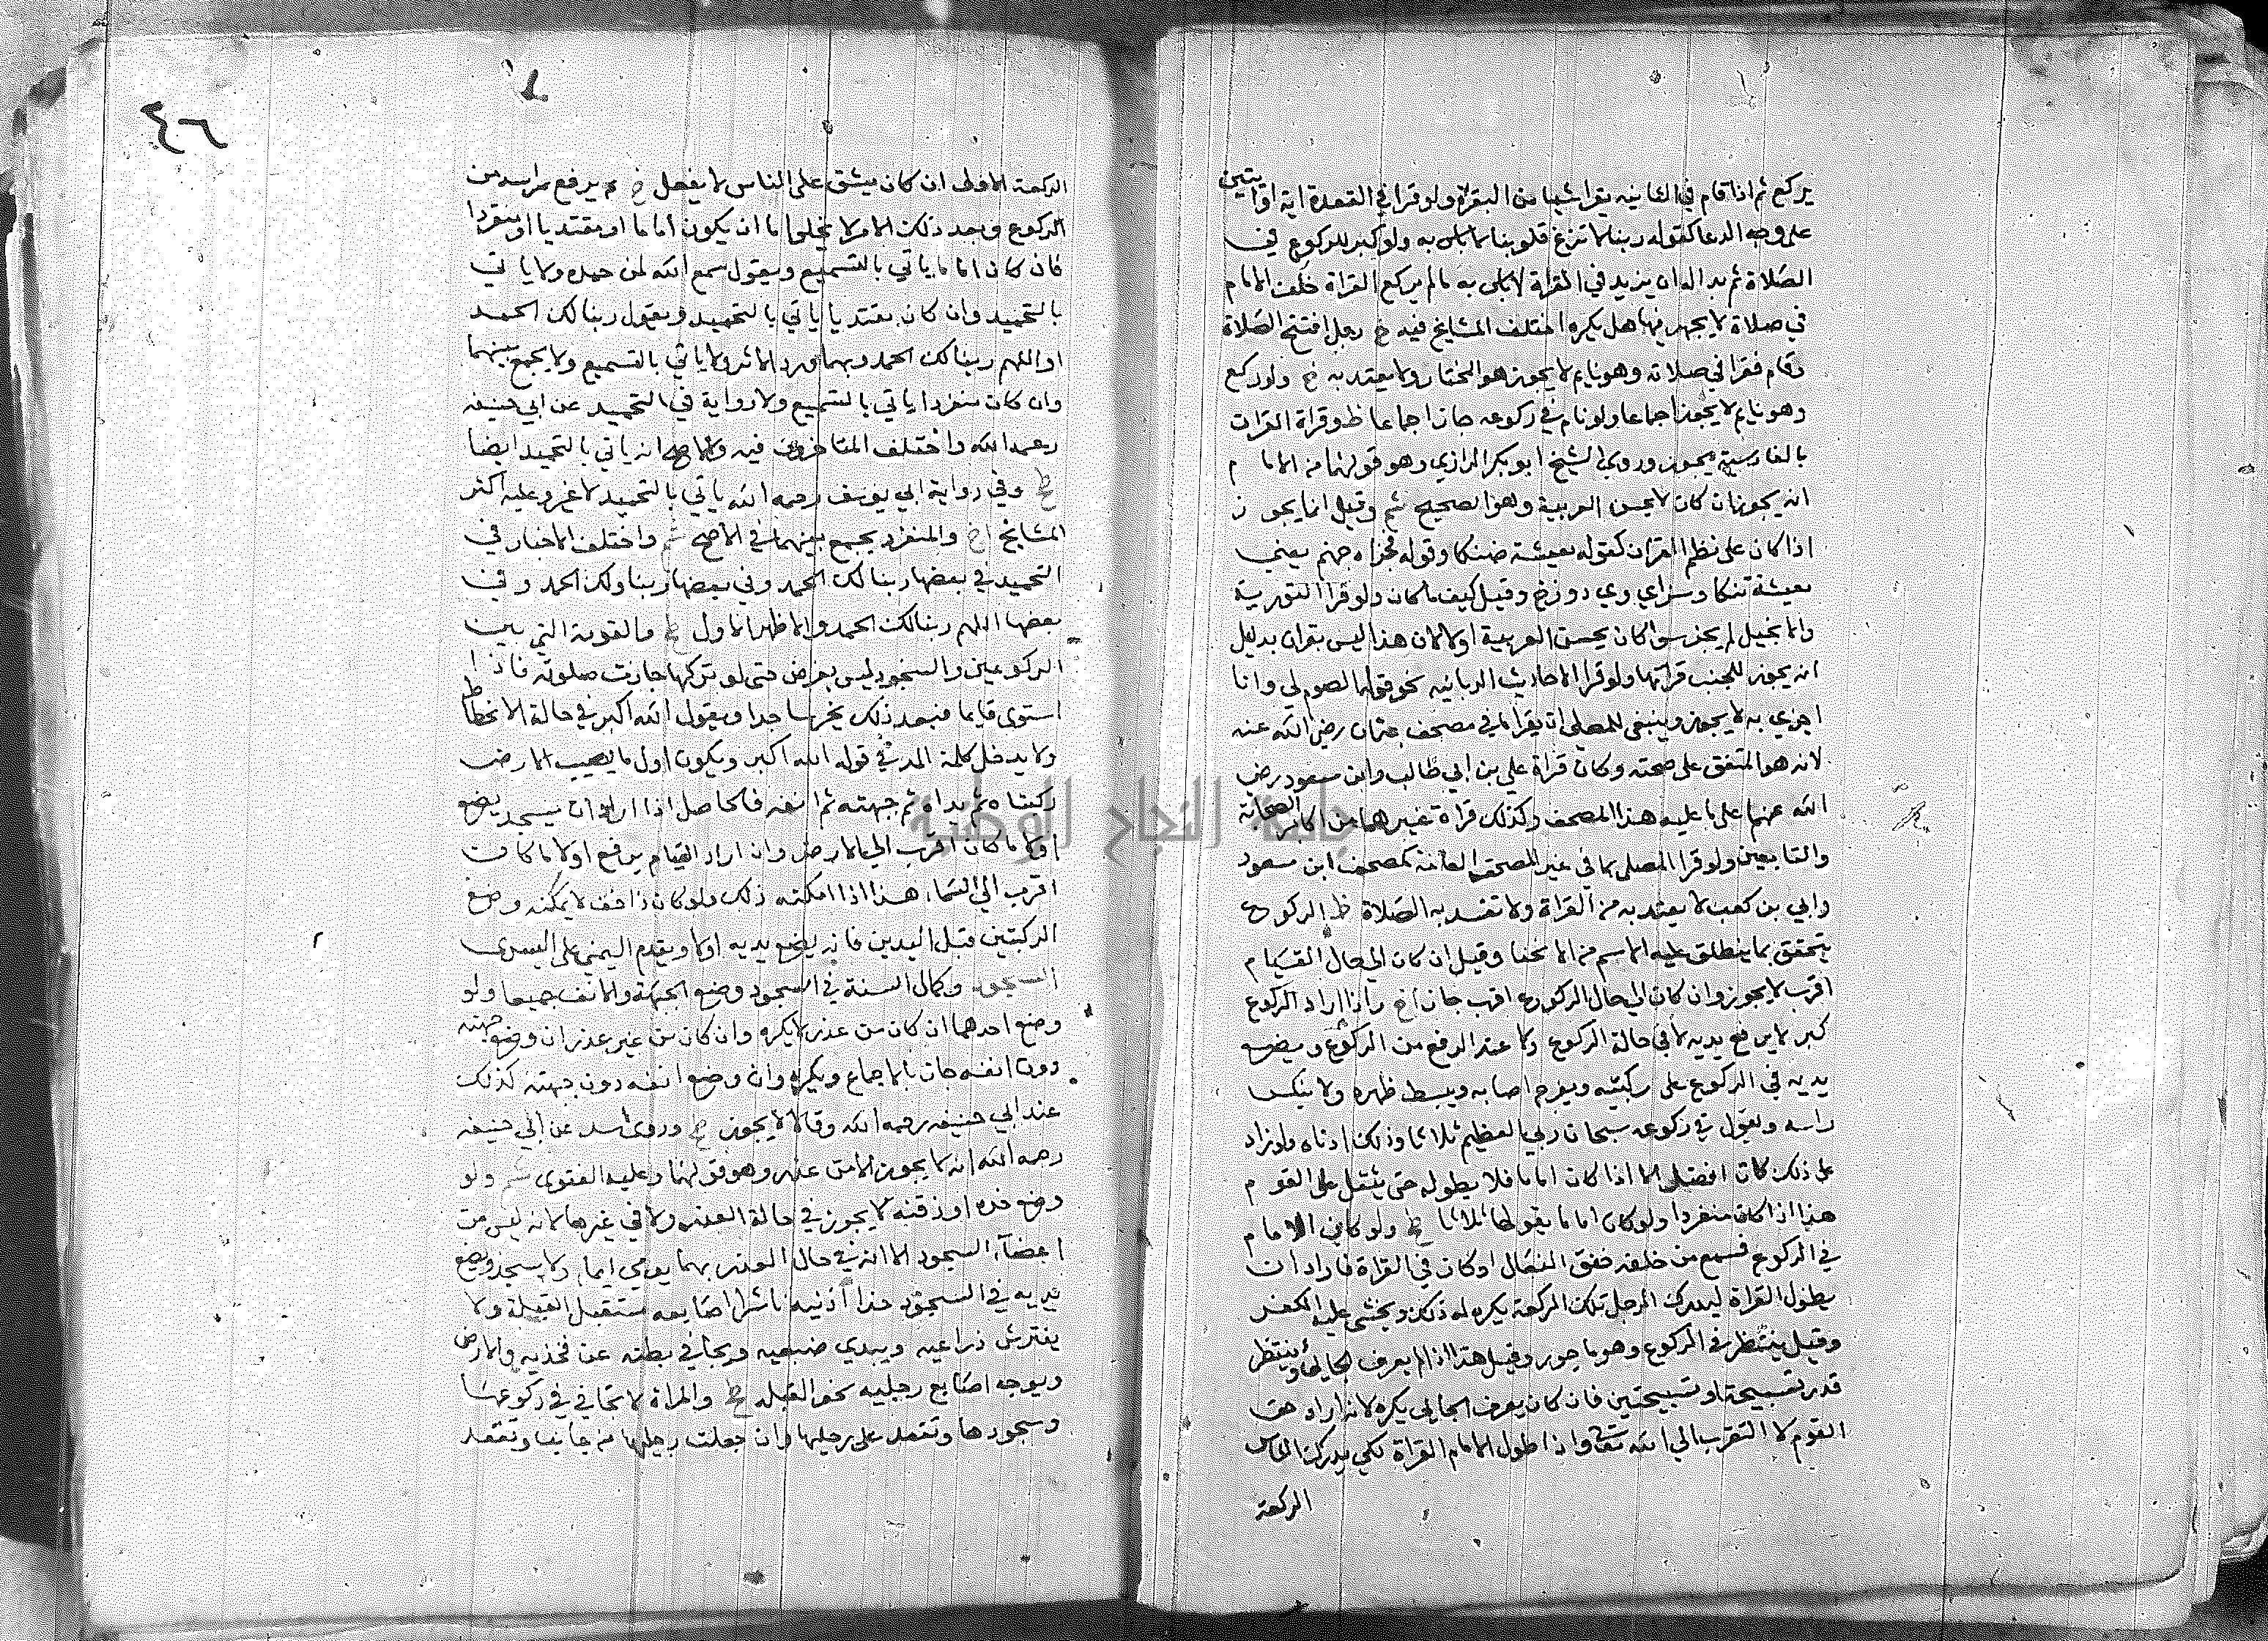 يركع ثم اذا قام في الثانيه يقرا شيا من البقرة ولو قرا في القعدة اية او ايتين
على وجه الدعا كقوله ربنا لا تزغ قلوبنا لا باس به ولو كبر للركوع في
الصلاة ثم بدا له ان يزيد في القراة لا باس به مالم يركع القراة خلف الامام
في صلاة لا يجهر فيها هل يكره اختلف المشايخ فيه رجل افتتح الصلاة
ونام فقرا في صلاته وهو نايم لا يجوز هو المختار ولا يعتد به ولو ركع
وهو نايم لا يجوز اجماعا ولو نام في ركوعه جاز اجماعا ظ وقراة القران
بالفارسية يجوز وروي الشيخ ابو بكر الرازي وهو قولهما من الامام
انه يجوز ان كان لا يحسن العربية وهو الصحيح وقيل انما يجوز
اذا كان على نظم القران كقوله معيشة ضنكا وقوله فجزاه جهنم يعني
معيشة تنكا وسزاي وي دوزخ وقيل كيف ما كان ولو قرا التورية
والانجيل لم يجز سوا كان يحسن العربية اولا لان هذا ليس بقران بدليل
انه يجوز للجنب قراتها ولو قرا الاحاديث الربانيه نحو قوله الصوم لي وانا
اجزي به لا يجوز وينبغي للمصلي ان يقرا بما في مصحف عثمان رضي الله عنه
لانه هو المتفق على صحته وكان قراة علي بن ابي طالب وابن مسعود رضي
الله عنهما على ما عليه هذا المصحف وكذلك قراة غيرهما من اكابر الصحابة
والتابعين ولو قرا المصلي بما في غير المصحف العامة كمصحف ابن مسعود
وابي بن كعب لا يعتد به من القراة ولا تفسد به الصلاة ظ الركوع
يتحقق بما ينطلق عليه الاسم من الانحنا وقيل ان كان الي حال القيام
اقرب لا يجوز وان كان الي حال الركوع اقرب جاز واذا اراد الركوع
كبر لا يرفع يديه لا في حالة الركوع ولا عند الرفع من الركوع ويضع
يديه في الركوع على ركبتيه ويفرج اصابه ويبسط ظهره ولا ينكس
راسه ويقول في ركوعه سبحان ربي العظيم ثلاثا وذلك ادناه ولو زاد
على ذلك كان افضل الا اذا كان اماما فلا يطوله حتى يثقل على القوم
هذا اذا كان منفردا ولو كان اماما يقولها ثلاثا ولو كان الامام
في الركوع فسمع من خلفه خفق النعال او كان في القراة فاراد ان
يطول القراة ليدرك الرجل تلك الركعة يكره له ذلك ويخشى عليه الكفر
وقيل ينتظر في الركوع وهو ماجور وقيل هذا اذا لم يعرف الجاي وينتظر
قدر تسبيحة او تسبيحتين فان كان يعرف الجاي يكره لانه اراد حق
القوم لا التقرب الي الله تعالى واذا طول الامام القراة لكي يدرك الناس
الركعة
٤٦
الركعة الاولى ان كان يشق على الناس لا يفعل ثم يرفع راسه من
الركوع وبعد ذلك الامر لا يخلو اما ان يكون اماما او مقتديا او منفردا
فان كان اماما ياتي بالتسميع ويقول سمع الله لمن حمده ولا ياتي
بالتحميد وان كان مقتديا ياتي بالتحميد ويقول ربنا لك الحمد
او اللهم ربنا لك الحمد وبهما ورد الاثر ولا ياتي بالتسميع ولا يجمع بينهما
وان كان منفردا ياتي بالتسميع ولا رواية في التحميد عن ابي حنيفه
رحمه الله واختلف المتاخرون فيه والاصح انه ياتي بالتحميد ايضا
وفي رواية ابي يوسف رحمه الله ياتي بالتحميد لا غير وعليه اكثر
المشايخ والمنفرد يجمع بينهما في الاصح واختلف الاخبار في
التحميد في بعضها ربنا لك الحمد وفي بعضها ربنا ولك الحمد وفي
بعضها اللهم ربنا لك الحمد والاظهر الاول والقومة التي بين
الركوعين والسجود ليس بفرض حتى لو تركها جازت صلوته فاذا
استوى قايما فبعد ذلك يخر ساجدا ويقول الله اكبر في حالة الانحطاط
ولا يدخل كلمة المد في قوله الله اكبر ويكون اول ما يصيب الارض
ركبتاه ثم يداه ثم جبهته ثم انفه فالحاصل اذا اراد ان يسجد يضع
اولا ما كان اقرب الي الارض وان اراد القيام يرفع اولا ما كان
اقرب الي السماء هذا اذا امكنه ذلك ولو كان ذا خف لا يمكنه وضع
الركبتين قبل اليدين فانه يضع يديه اولا ويقدم اليمنى على اليسرى
السجود وكمال السنة في السجود وضع الجبهة والانف جميعا ولو
وضع احدهما ان كان من عذر لا يكره وان كان من غير عذر ان وضع جبهته
دون انفه جاز بالاجماع ويكره وان وضع انفه دون جبهته كذلك
عند ابي حنيفه رحمه الله وقالا لا يجوز وروى اسد عن ابي حنيفه
رحمه الله انه لا يجوز الا من عذر وهو قولهما وعليه الفتوى ولو
وضع خده او ذقنه لا يجوز في حالة العذر ولا في غيرها لانه ليس من
اعضاء السجود الا ان في حال العذر بهما يومي ايماء ولا يسجد ويضع
يديه في السجود حذا اذنيه ناشرا اصابعه مستقبل القبلة ولا
يفترش ذراعيه ويبدي ضبعيه ويجافي بطنه عن فخذيه والارض
ويوجه اصابع رجليه نحو القبله والمراة لا تتجافي في ركوعها
وسجودها وتقعد على رجليها وان جعلت رجليها من جانب وتقعد
جامعة النجاح الوطنية